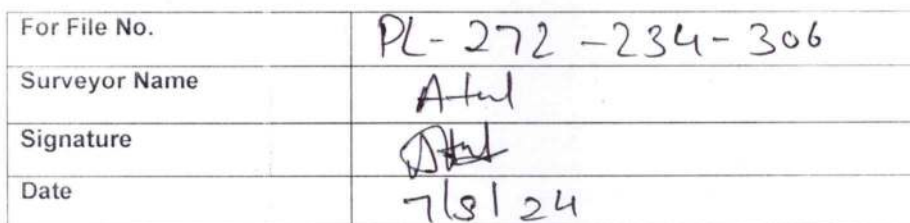 For File No. PL-272-234-306
Surveyor Name Atul
Signature Atul
Date 7/8/24